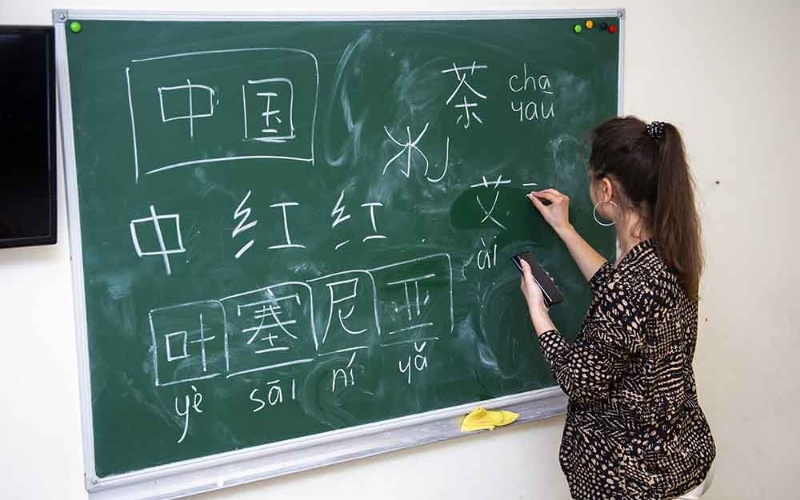 中国
茶 cha
чай
中 红 红
艾
ài
叶 塞 尼 亚
yè sāi ní yǎ